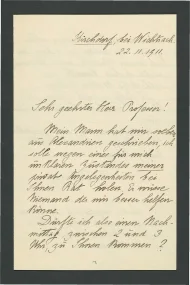 Kirchdorf, bei Wichtrach
22. 11. 1911.
Sehr geehrter Herr Professor!
Mein Mann hat mir soeben
aus Alexandrien geschrieben, ich
solle wegen eine für mich
im klaren Zustandes meiner
Angelegenheiten bei
Ihnen Rat holen. Es würde
Niemand da mir besser helfen
könne.
Dürfte ich also einen Nach
mittag zwischen 2 und 3
Uhr zu Ihnen kommen?